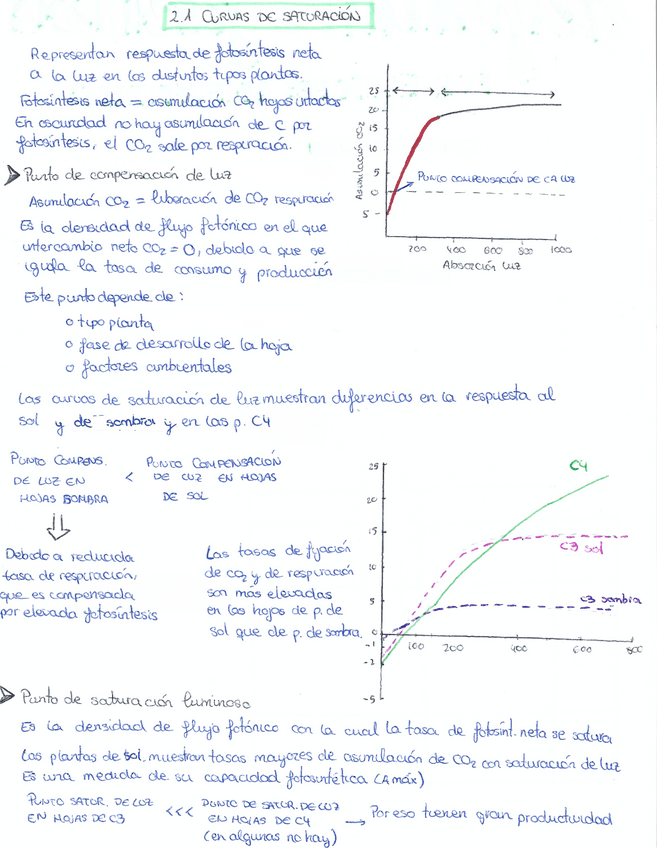 2.1 CURVAS DE SATURACIÓN
Representan respuesta de fotosíntesis neta
a la luz en los distintos tipos plantas.
Fotosíntesis neta = asimilación CO2 hojas intactas
En oscuridad no hay asimilación de C por
fotosíntesis, el CO2 sale por respiración.
Punto de compensación de luz
Asimilación CO2 = liberación de CO2 respiración
Es la densidad de flujo fotónico en el que
intercambio neto CO2 = 0, debido a que se
iguala la tasa de consumo y producción
Este punto depende de:
o tipo planta
o fase de desarrollo de la hoja
o factores ambientales
Asimilación CO2
25
20
15
10
5
0
5 -
PUNTO COMPENSACIÓN DE LA LUZ
200 400 600 800 1000
Absorción luz
Las curvas de saturación de luz muestran diferencias en la respuesta al
sol y de sombra y en las p. C4
PUNTO COMPENS.
DE LUZ EN
HOJAS SOMBRA
<
PUNTO COMPENSACIÓN
DE LUZ EN HOJAS
DE SOL
Debido a reducida
tasa de respiración,
que es compensada
por elevada fotosíntesis
Las tasas de fijación
de CO2 y de respiración
son más elevadas
en las hojas de p. de
sol que de p. de sombra.
25
20
15
10
5
0
-1
-2
-5
100 200 400 600 800
C4
C3 sol
C3 sombra
Punto de saturación luminoso
Es la densidad de flujo fotónico con la cual la tasa de fotosínt. neta se satura
Las plantas de sol muestran tasas mayores de asimilación de CO2 con saturación de luz
Es una medida de su capacidad fotosintética (A máx)
PUNTO SATUR. DE LUZ
EN HOJAS DE C3
<<<
PUNTO DE SATUR. DE LUZ
EN HOJAS DE C4
(en algunas no hay)
→ Por eso tienen gran productividad